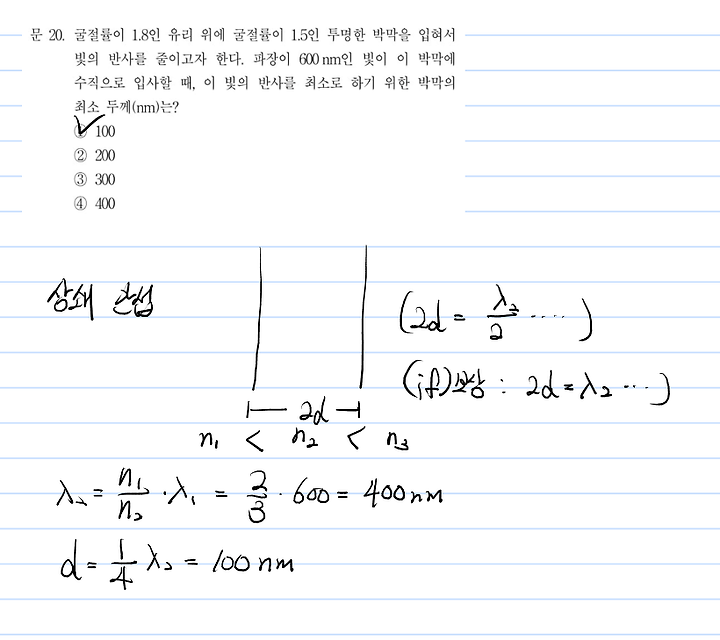 문 20. 굴절률이 1.8인 유리 위에 굴절률이 1.5인 투명한 박막을 입혀서
빛의 반사를 줄이고자 한다. 파장이 600 nm인 빛이 이 박막에
수직으로 입사할 때, 이 빛의 반사를 최소로 하기 위한 박막의
최소 두께(nm)는?
① 100
② 200
③ 300
④ 400
상쇄 간섭
(2d = λ₂/2 ‥‥)
(if)보강 : 2d = λ₂ ‥)
2d
n₁ < n₂ < n₃
λ₂ = n₁/n₂ · λ₁ = 2/3 · 600 = 400 nm
d = 1/4 λ₂ = 100 nm